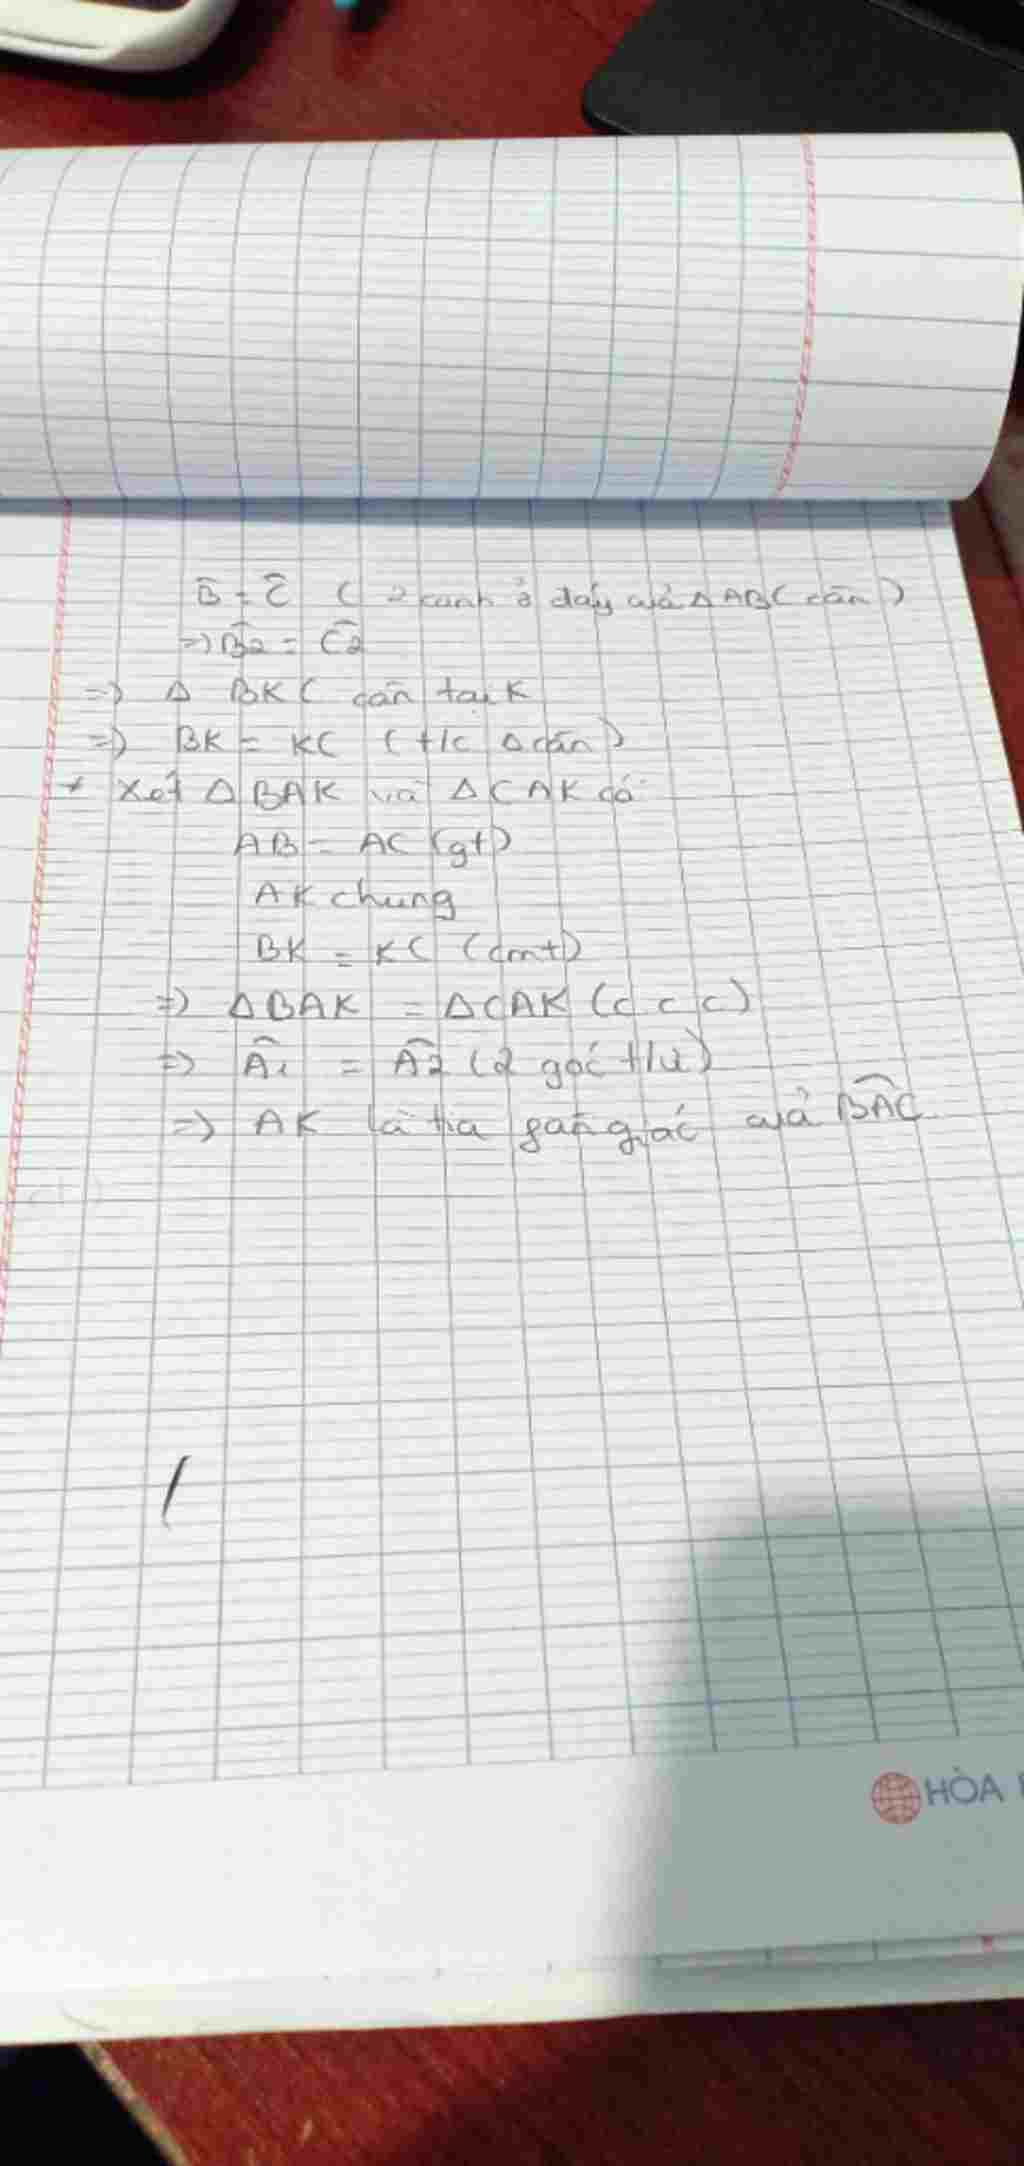 B̂ = Ĉ ( 2 canh ở đáy của Δ ABC cân )
=> B̂2 = Ĉ2
=> Δ BKC cân tại K
=> BK = KC ( t/c Δ cân )
* Xét Δ BAK và Δ CAK có
AB = AC (gt)
AK chung
BK = KC (cmt)
=> Δ BAK = Δ CAK (c c c)
=> Â1 = Â2 (2 góc t/ư)
=> AK là tia gân giác của BÂC
HÒA